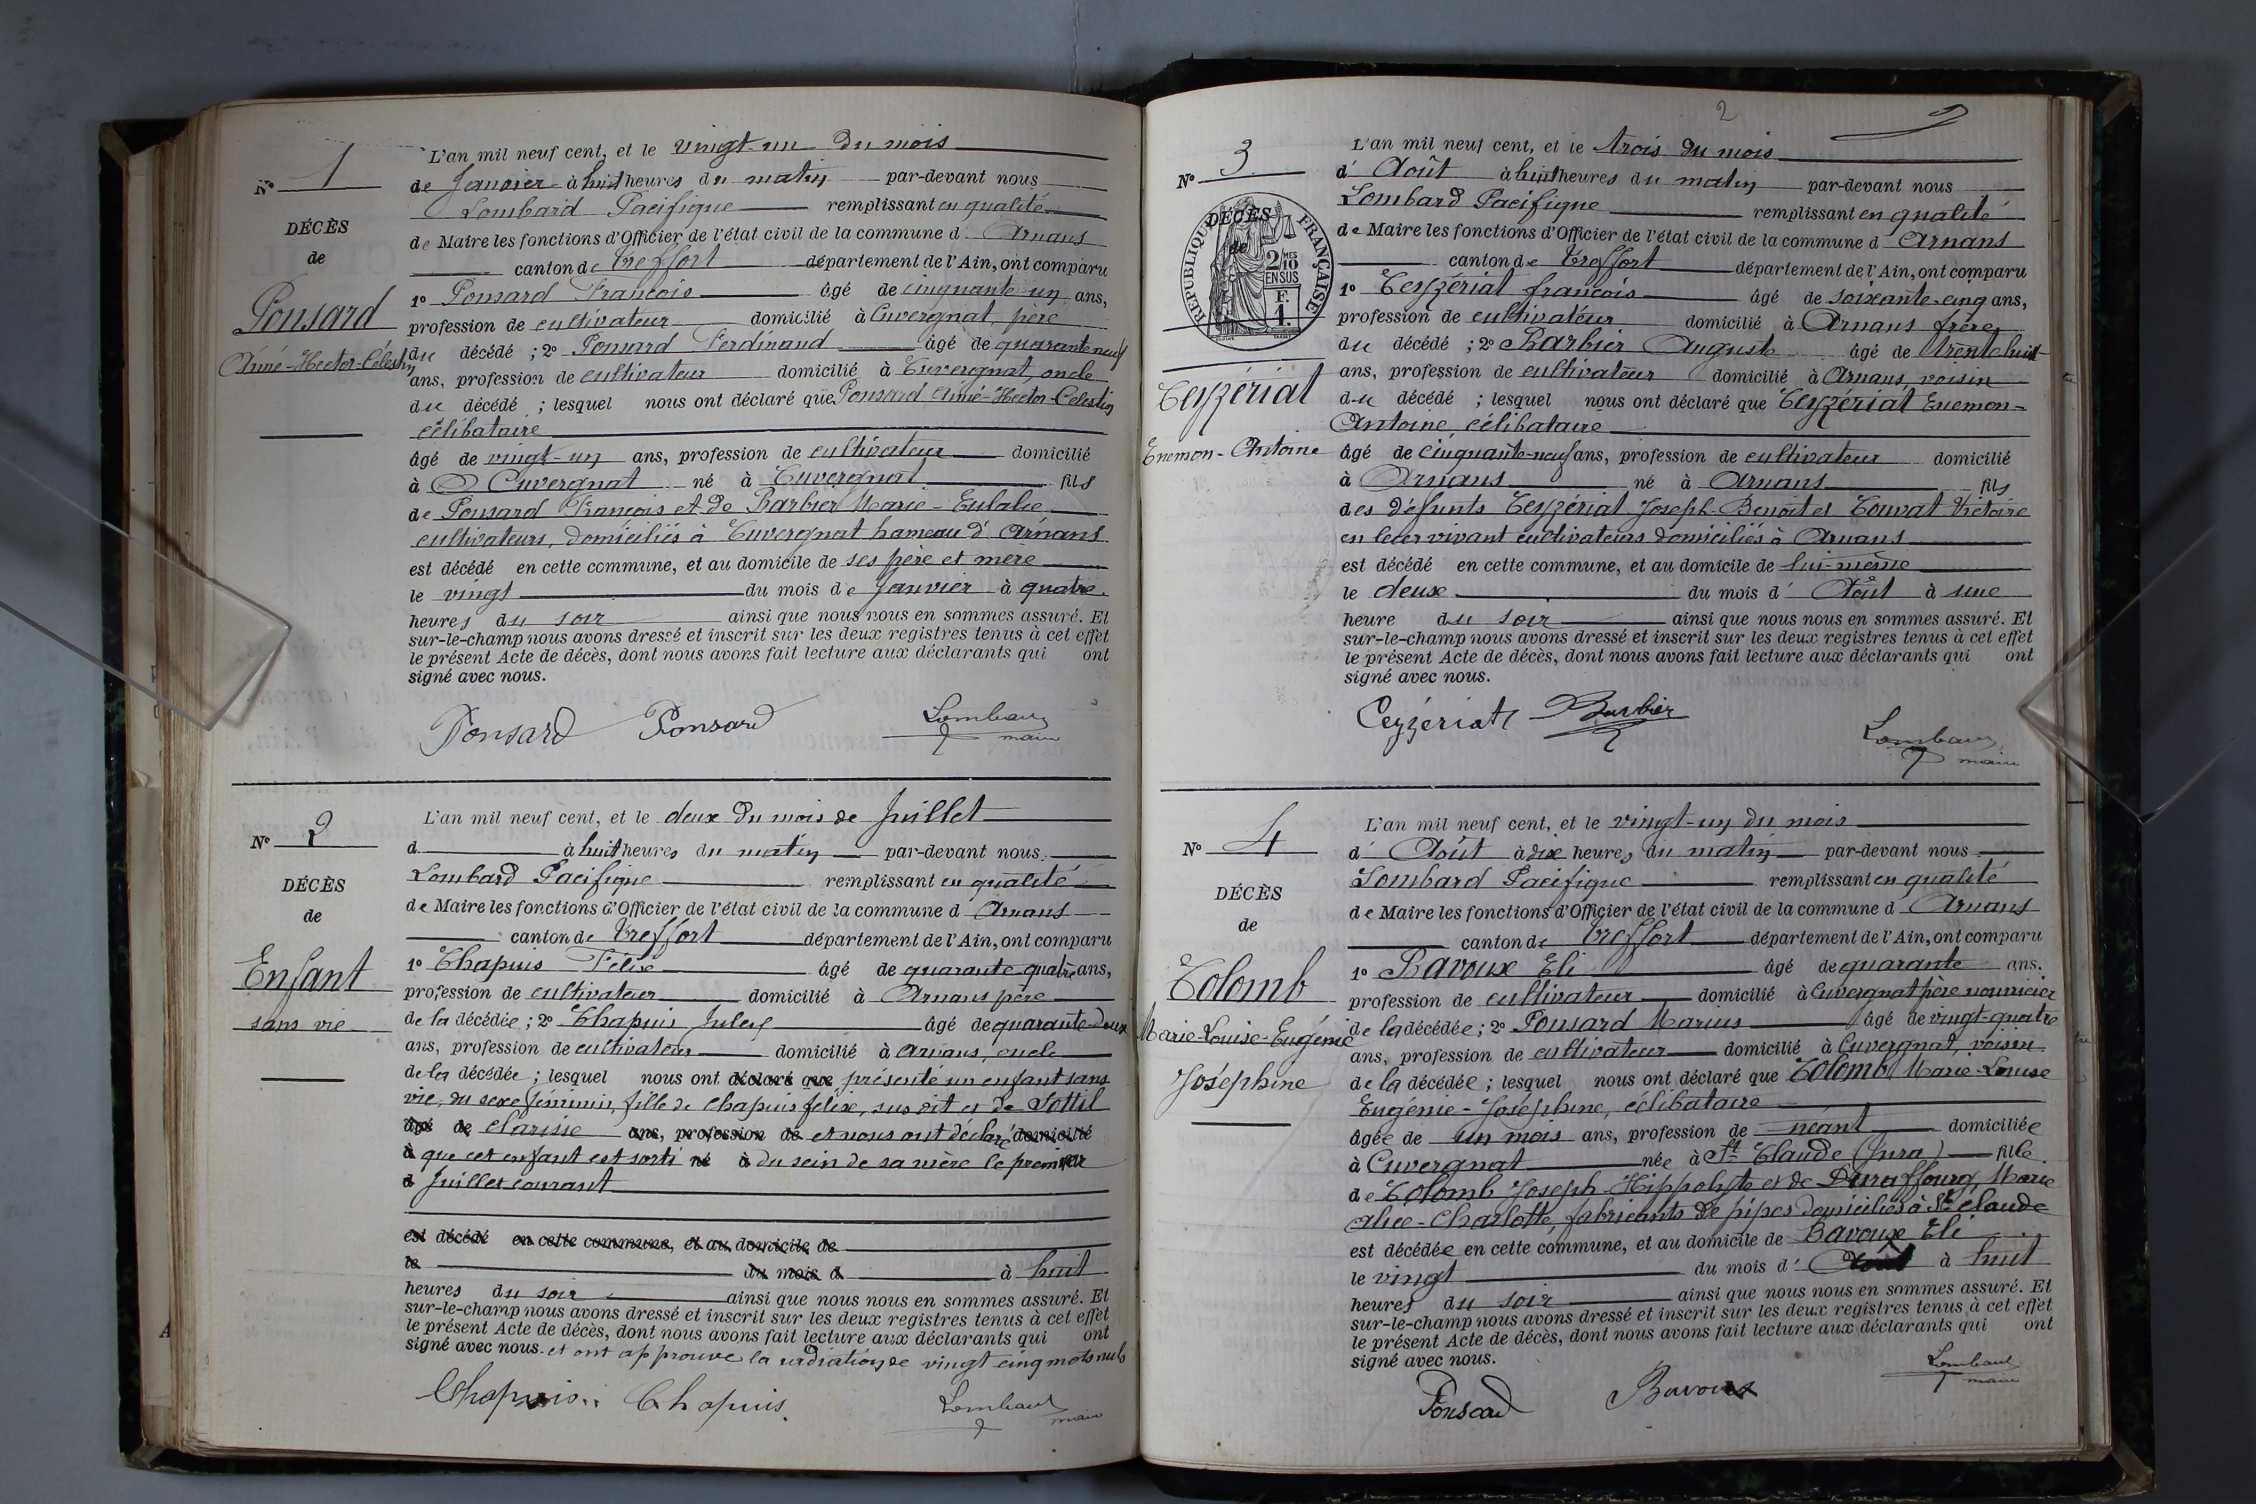 N° 1
DÉCÈS
de
Ponsard
Aimé-Hector-Célestin
L'an mil neuf cent, et le vingt-un du mois
de Janvier à huit heures du matin par-devant nous
Lombard Pacifique remplissant en qualité
de Maire les fonctions d'Officier de l'état civil de la commune d Arnans
canton de Treffort département de l'Ain, ont comparu
1° Ponsard François âgé de cinquante-un ans,
profession de cultivateur domicilié à Cuvergnat, père
du décédé ; 2° Ponsard Ferdinand âgé de quarante neuf
ans, profession de cultivateur domicilié à Cuvergnat, oncle
du décédé ; lesquel nous ont déclaré que Ponsard Aimé-Hector-Célestin
célibataire
âgé de vingt-un ans, profession de cultivateur domicilié
à Cuvergnat né à Cuvergnat fils
de Ponsard François et de Barbier Marie-Eulalie
cultivateurs, domiciliés à Cuvergnat hameau d'Arnans
est décédé en cette commune, et au domicile de ses père et mère
le vingt du mois de Janvier à quatre
heures du soir ainsi que nous nous en sommes assuré. Et
sur-le-champ nous avons dressé et inscrit sur les deux registres tenus à cet effet
le présent Acte de décès, dont nous avons fait lecture aux déclarants qui ont
signé avec nous.
Ponsard Ponsard Lombard
maire
N° 2
DÉCÈS
de
Enfant
sans vie
L'an mil neuf cent, et le deux du mois de Juillet
d à huit heures du matin par-devant nous
Lombard Pacifique remplissant en qualité
de Maire les fonctions d'Officier de l'état civil de la commune d Arnans
canton de Treffort département de l'Ain, ont comparu
1° Chapuis Félix âgé de quarante quatre ans,
profession de cultivateur domicilié à Arnans père
de la décédée ; 2° Chapuis Jules âgé de quarante-deux
ans, profession de cultivateur domicilié à Arnans, oncle
de la décédée ; lesquel nous ont déclaré que présenté un enfant sans
vie, du sexe féminin, fille de Chapuis félix, sus dit et de Sottil
âgé de Clarisie ans, profession de et nous ont déclaré domicilié
à que cet enfant est sorti né à du sein de sa mère le premier
d Juillet courant
est décédé en cette commune, et au domicile de
le du mois d à huit
heures du soir ainsi que nous nous en sommes assuré. Et
sur-le-champ nous avons dressé et inscrit sur les deux registres tenus à cet effet
le présent Acte de décès, dont nous avons fait lecture aux déclarants qui ont
signé avec nous. et ont approuvé la radiation de vingt cinq mots nuls
Chapuis Chapuis Lombard
maire
2
N° 3
RÉPUBLIQUE FRANÇAISE
2 MES
10
EN SUS
F.
1.
DÉCÈS
de
Ceyzériat
Enemon-Antoine
L'an mil neuf cent, et le trois du mois
d'Août à huit heures du matin par-devant nous
Lombard Pacifique remplissant en qualité
de Maire les fonctions d'Officier de l'état civil de la commune d Arnans
canton de Treffort département de l'Ain, ont comparu
1° Ceyzériat françois âgé de soixante-cinq ans,
profession de cultivateur domicilié à Arnans frère
du décédé ; 2° Barbier Auguste âgé de trente huit
ans, profession de cultivateur domicilié à Arnans, voisin
du décédé ; lesquel nous ont déclaré que Ceyzériat Enemon-
Antoine, célibataire
âgé de cinquante-neuf ans, profession de cultivateur domicilié
à Arnans né à Arnans fils
des défunts Ceyzériat Joseph-Benoit et Convat Victoire
en leur vivant cultivateurs domiciliés à Arnans
est décédé en cette commune, et au domicile de lui-même
le deux du mois d'Août à une
heure du soir ainsi que nous nous en sommes assuré. Et
sur-le-champ nous avons dressé et inscrit sur les deux registres tenus à cet effet
le présent Acte de décès, dont nous avons fait lecture aux déclarants qui ont
signé avec nous.
Ceyzériat Barbier Lombard
maire
N° 4
DÉCÈS
de
Colomb
Marie-Louise-Eugénie
Joséphine
L'an mil neuf cent, et le vingt-un du mois
d'Août à dix heures du matin par-devant nous
Lombard Pacifique remplissant en qualité
de Maire les fonctions d'Officier de l'état civil de la commune d Arnans
canton de Treffort département de l'Ain, ont comparu
1° Bavoux Eli âgé de quarante ans.
profession de cultivateur domicilié à Cuvergnat père nourricier
de la décédée ; 2° Ponsard Marius âgé de vingt-quatre
ans, profession de cultivateur domicilié à Cuvergnat, voisin
de la décédée ; lesquel nous ont déclaré que Colomb Marie-Louise
Eugénie-Joséphine, célibataire
âgée de un mois ans, profession de néant domiciliée
à Cuvergnat née à St Claude (Jura) fille
de Colomb Joseph-Hippolyte et de Duraffourg, Marie
Alice-Charlotte, fabricants de pipes domiciliés à St Claude
est décédée en cette commune, et au domicile de Bavoux Eli
le vingt du mois d'Août à huit
heures du soir ainsi que nous nous en sommes assuré. Et
sur-le-champ nous avons dressé et inscrit sur les deux registres tenus à cet effet
le présent Acte de décès, dont nous avons fait lecture aux déclarants qui ont
signé avec nous.
Ponsard Bavoux Lombard
maire